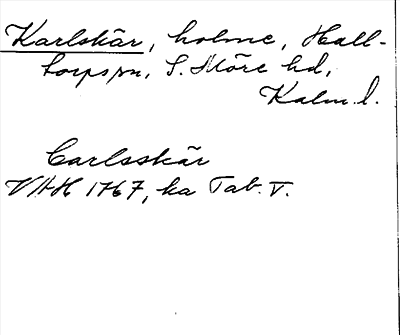 Karlskär, holme, Hall-
torps sn, S. Möre hd,
Kalm. l.
Carlsskär
VAH 1767, ka Tab. V.